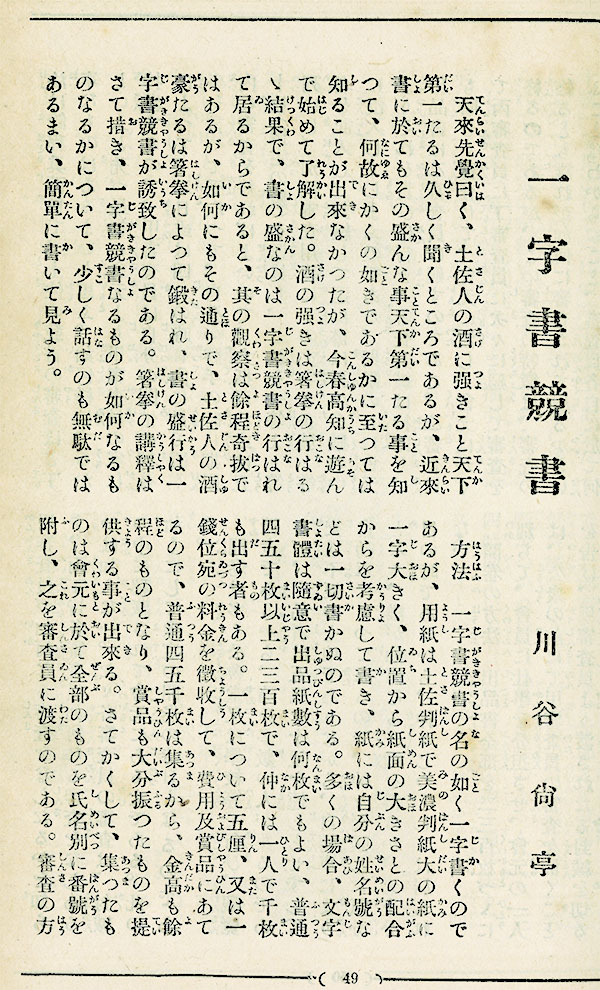 一字書競書
川谷尙亭
天來先覺曰く、土佐人の酒に强きこと天下
第一たるは久しく聞くところであるが、近來
書に於てもその盛んな事天下第一たる事を知
つて、何故にかくの如きであるかに至つては
知ることが出來なかつたが、今春高知に遊ん
で始めて了解した。酒の强きは箸拳の行はる
ゝ結果で、書の盛なのは一字書競書の行はれ
て居るからであると、其の觀察は餘程奇拔で
はあるが、如何にもその通りで、土佐人の酒
豪たるは箸拳によつて鍛はれ、書の盛行は一
字書競書が誘致したのである。箸拳の講釋は
さて措き、一字書競書なるものが如何なるも
のなるかについて、少しく話すのも無駄では
あるまい、簡單に書いて見よう。
方法　一字書競書の名の如く一字書くので
あるが、用紙は土佐判紙で美濃判紙大の紙に
一字大きく、位置から紙面の大きさとの配合
からを考慮して書き、紙には自分の姓名號な
どは一切書かぬのである。多くの場合、文字
書體は隨意で出品紙數は何枚でもよい、普通
四五十枚以上二三百枚で、仲には一人で千枚
も出す者もある。一枚について五厘、又は一
錢位宛の料金を徵收して、費用及賞品にあて
るので、普通四五千枚は集るから、金高も餘
程のものとなり、賞品も大分振つたものを提
供する事が出來る。さてかくして、集つたも
のは會元に於て全部のものを氏名別に番號を
附し、之を審査員に渡すのである。審査の方
49